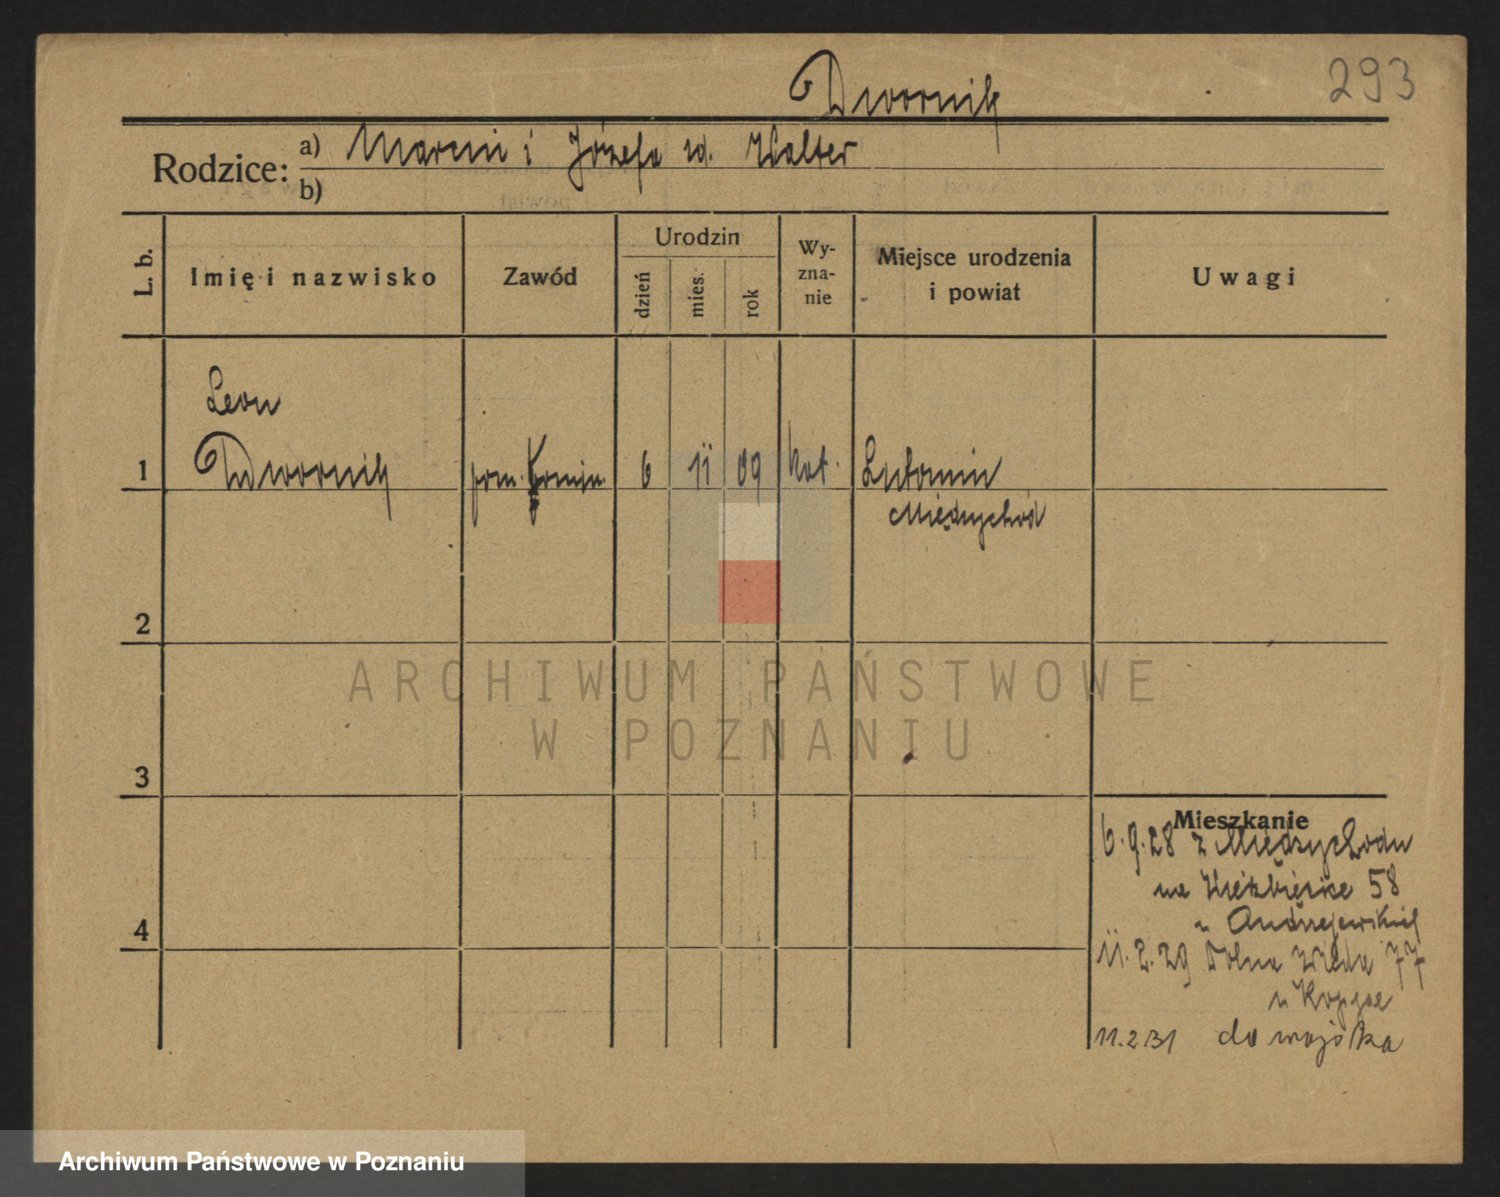 293
Dwornik
Rodzice:
a) Marcin i Józefa zd. Walter
b)
L. b.
Imię i nazwisko
Zawód
Urodzin
dzień
mies.
rok
Wy-
zna-
nie
Miejsce urodzenia
i powiat
Uwagi
Leon
1 Dwornik pom. komin. 6 11 09 kat. Lutomin
Międzychód
2
3
4
Mieszkanie
6.9.28 z Międzychodu
na 58
u Andrzejewskich
11.2.29 Dolna Wilda 77
u
11.2.31 do wojska
ARCHIWUM PAŃSTWOWE
W POZNANIU
Archiwum Państwowe w Poznaniu